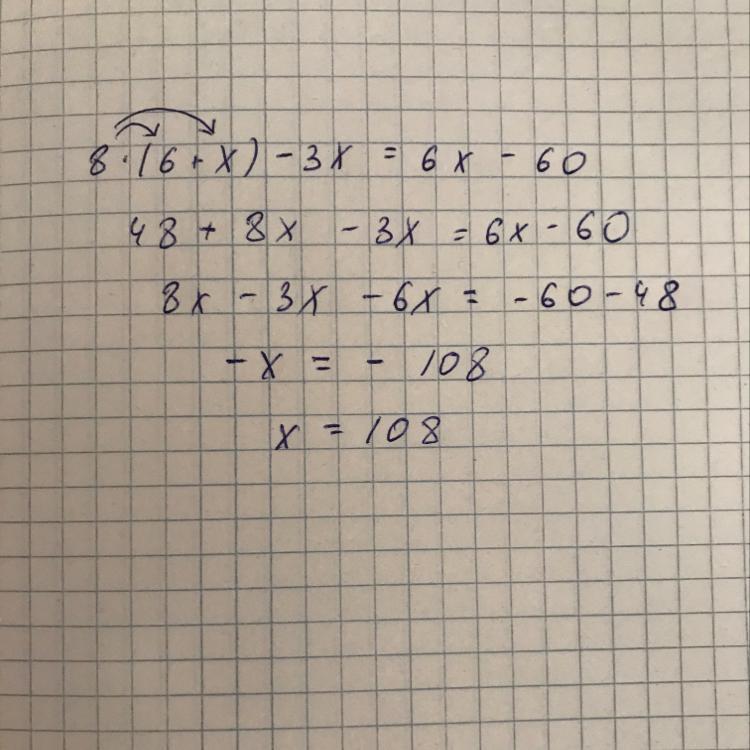 8·(6+x) - 3x = 6x - 60
48 + 8x - 3x = 6x - 60
8x - 3x - 6x = -60 - 48
-x = - 108
x = 108